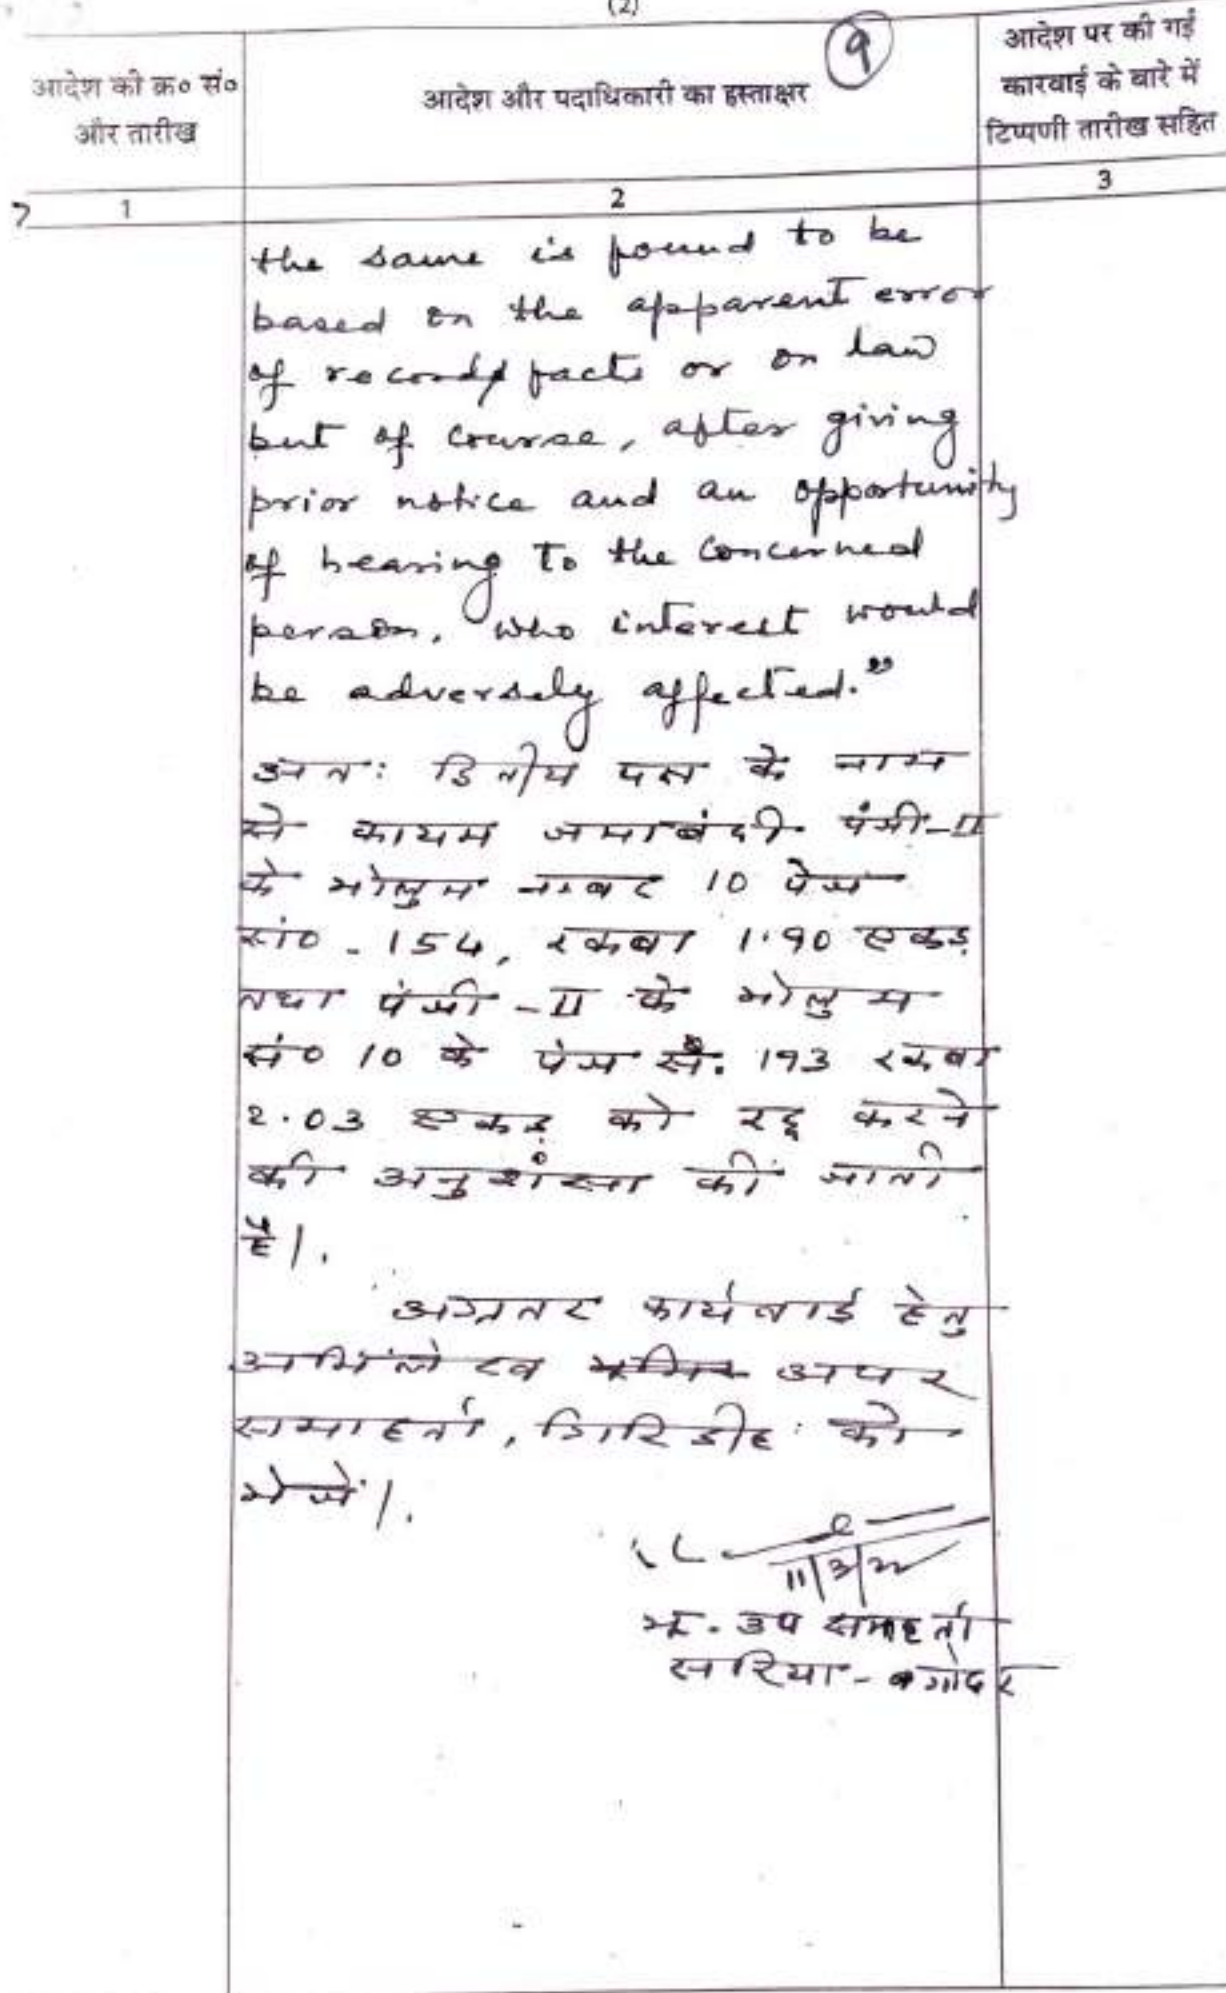 (2)
9
आदेश की क्र० सं०
और तारीख
आदेश और पदाधिकारी का हस्ताक्षर
आदेश पर की गई
कारवाई के बारे में
टिप्पणी तारीख सहित
1
2
3
the same is found to be
based on the apparent error
of record facts or on law
but of course, after giving
prior notice and an opportunity
of hearing to the concerned
person, who interest would
be adversely affected."
अतः द्वितीय पक्ष के नाम
से कायम जमाबंदी पंजी-II
के भोलुम नम्बर 10 पेज
सं० - 154, रकबा 1.90 एकड़
तथा पंजी-II के भोलुम
सं० 10 के पेज सं. 193 रकबा
2.03 एकड़ को रद्द करने
की अनुशंसा की जाती
है।
अग्रतर कार्यवाई हेतु
अभिलेख अपर
समाहर्ता, गिरिडीह को
भेजें।
11/3/22
भू. उप समाहर्ता
सरिया - बगोदर